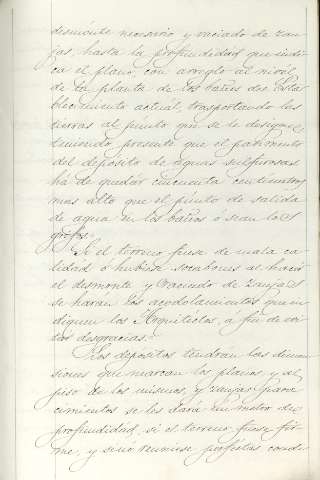 desmonte necesario y vaciado de zan-
jas, hasta la profundidad que indi-
ca el plano, con arreglo al nivel
de la planta de los baños del Esta
blecimiento actual, trasportando las
tierras al punto que se le designe,
teniendo presente que el pavimento
del deposito de aguas sulfurosas
ha de quedar cincuenta centimetros
mas alto que el punto de salida
de agua en los baños ó sean los
grifos.
Si el terreno fuese de mala ca
lidad ó hubiese socabones al hacer
el desmonte y vaciado de zanjas
se haran los acodalamientos que in
diquen los Arquitectos, a fin de evi
tar desgracias.
Los depositos tendrán las dimen
siones que marcan los planos, y al
peso de los mismos, y zanjas para
cimientos se les dará un metro de
profundidad, si el terreno fuese fir-
me, y si no reuniese perfectas condi-